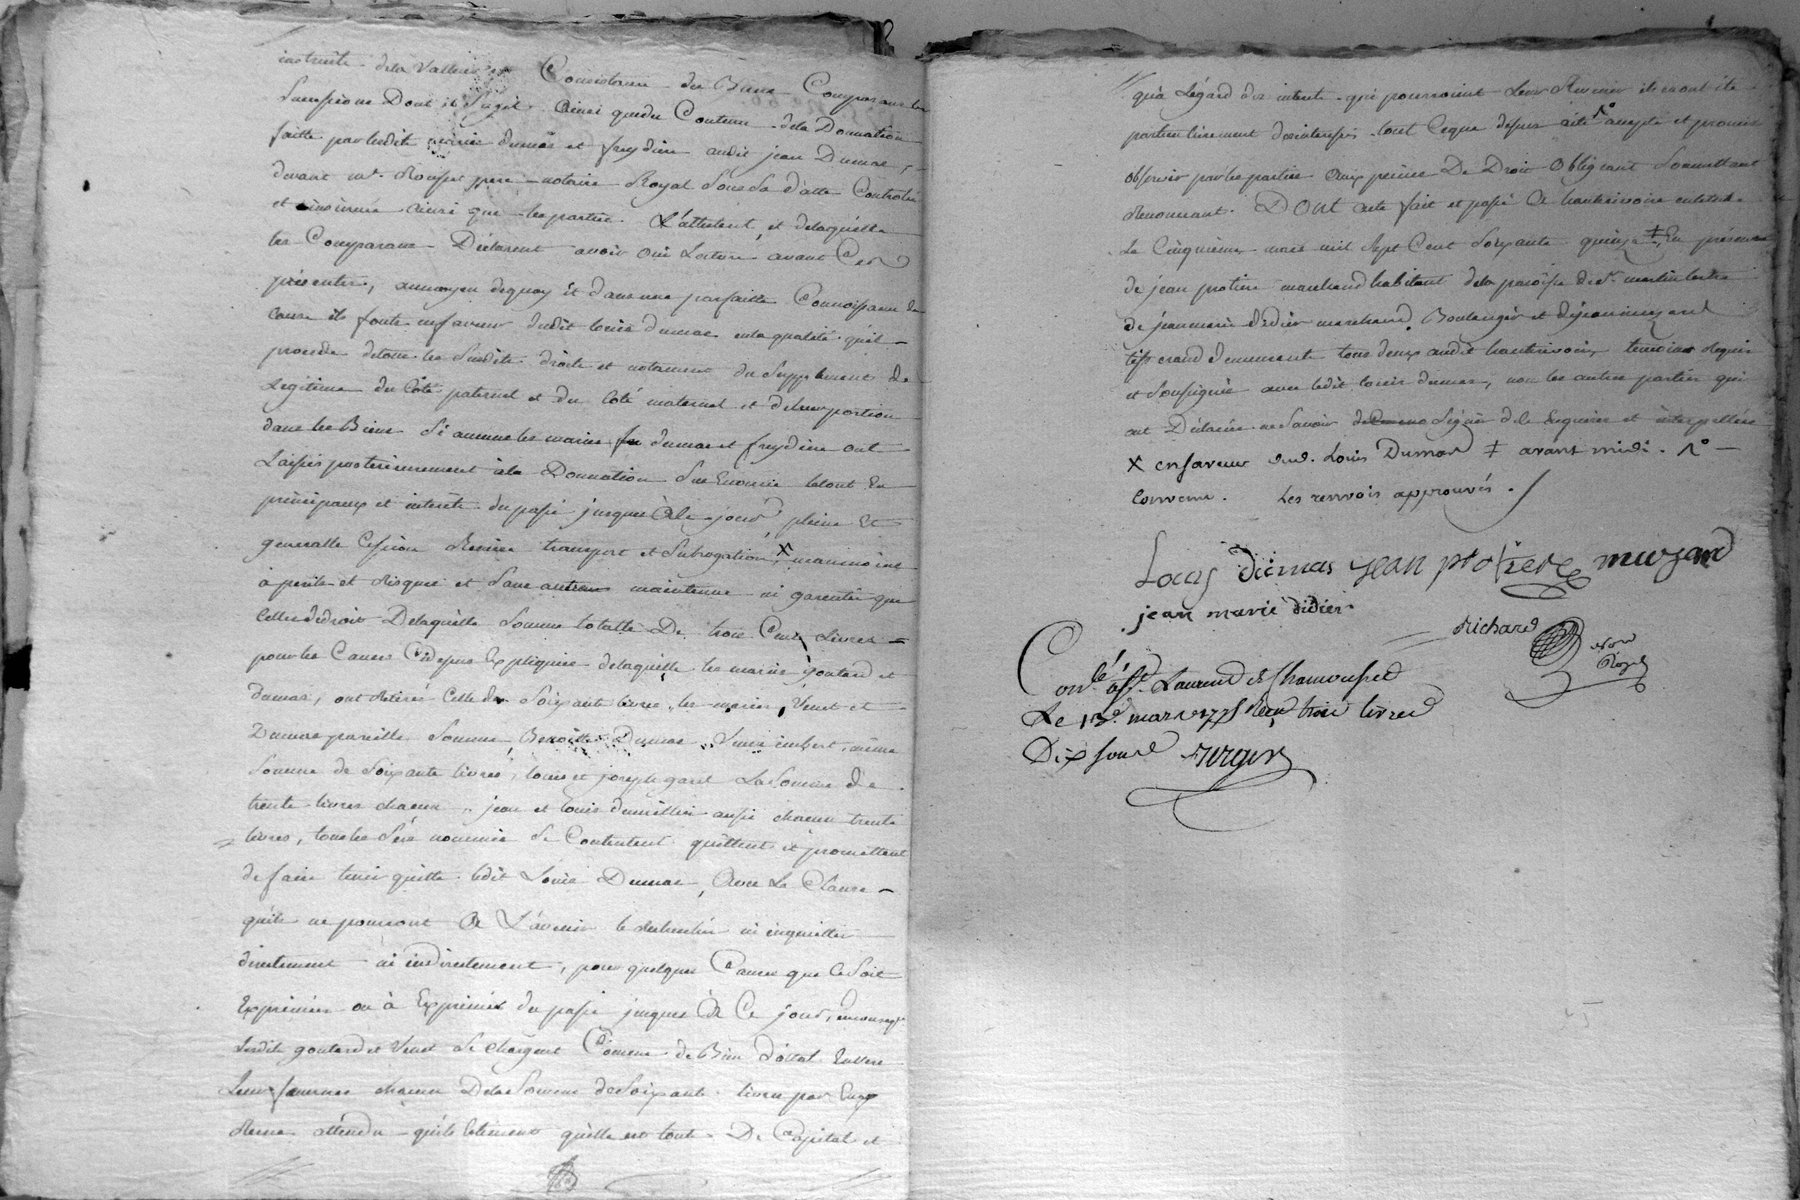 instruits de la Valleur et Consistance des Biens Composans les
successions Dont il s'agit ainsi que du Contenu de la Donnation
faitte par lesdits mariés dumas et freydiere audit jean Dumas,
devant me. Rousset pere notaire Royal sous sa datte Controlée
et insinuée ainsi que les parties L'attestent, et delaquelle
les Comparans Déclarent avoir oui Lecture avant Ces
présentes, aumoyen dequoy et dans une parfaitte Connoissance de
cause ils fonts enfaveur dudit louis dumas en la qualité qu'il
procede detous les susdits droits et notament du supplement de
Legitime du Côté paternel et du Côté maternel et deleurs portion
dans les Biens si aucuns les mariés dumas et freydiere ont
Laissés posterieurement à la Donnation sus Enoncée letout En
principaux et interêts du passé jusques à Ce jour, pleine Et
generalle Cession Remise transport et subrogation, X neanmoins
à perils et Risques et sans autres maintenue ni garentie que
Celles dedroit Delaquelle somme totalle De trois Cens Livres
pour les Causes Cydessus Expliquées delaquelle les mariés goutard et
dumas, ont Retiré Celle de soixante livres, les mariés Venet et
Dumas pareille somme, Benoitte Dumas Veuve imbert, même
somme de soixante livres, louis et joseph garel La somme de
trente livres chacun, jean et louis dumillier aussi chacun trente
livres, tous les sus nommés se Contentent quittent et promettent
de faire tenir quitte ledit Louis Dumas, Avec La Clause
qu'ils ne pourront à L'avenir le rechercher ni inquietter
directement ni indirectement, pour quelques Causes que ce soit
Exprimées ou à Exprimer du passé jusques à Ce jour,
lesdits goutard et Venet se chargent Comme de Bien dotal Envers
Leurs femmes chacun De la somme de soixante livres par Eux
Reçue attendu qu'ils estiment qu'elle est toute De Capital et
qu'a L'égard des interets qui pourroient Leur Revenir ils en ont été
particulierement desinteressés tout Ceque dessus a été ꝉ° accepté et promis
observer par les parties aux peines De Droit obligeant soumettant
Renonceant. DONT acte fait et passé à hauterivoire en l'etude
Le Cinquieme mars mil sept Cent soixante quinze ‡ En présence
de jean protiere marchand habitant de la paroisse de st martin
de jeanmarie didier marchand Boulanger et de jean muzard
tisserand demeurants tous deux audit hauterivoire temoins Requis
et soussignés avec ledit louis dumas, non les autres parties qui
ont Déclarés ne savoir signer de le Enquises et interpellées
X en faveur dud. Louis Dumas ‡ avant midi. ꝉ°
Convenu. Les renvois approuvés.
Louis dumas jean protiere muzard
jean marie didier
Richard
not Royal
Conlé à St. Laurent de Chamousset
Le 13e mars 1775 Reçu trois livres
Dix sous Berger